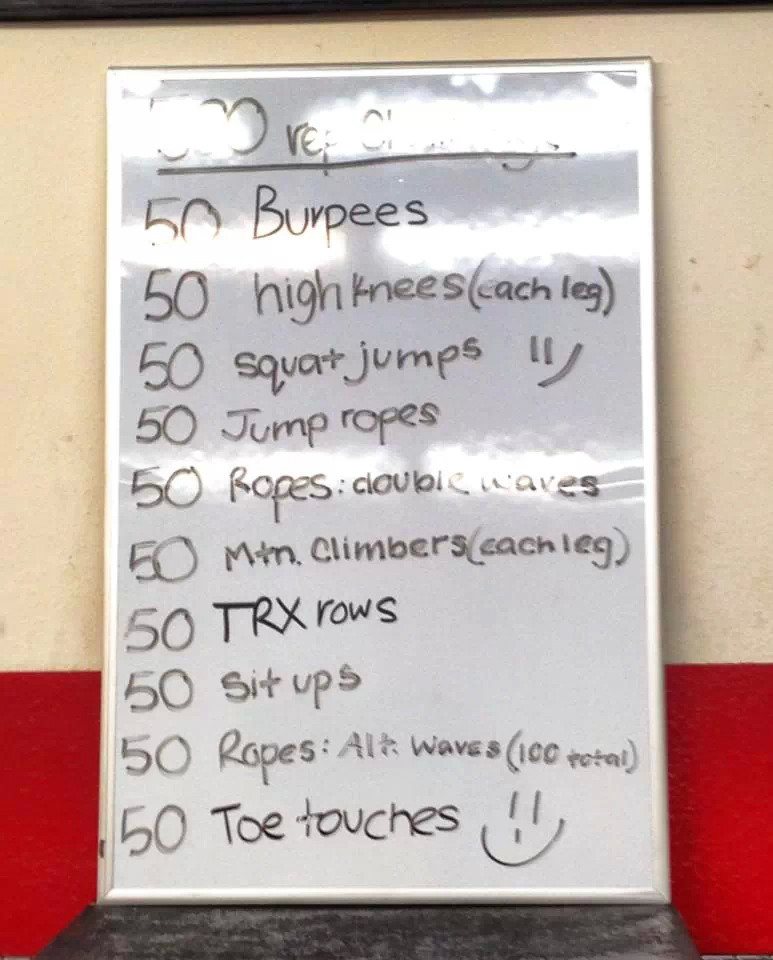 500 rep Challenge
50 Burpees
50 high knees (each leg)
50 squat jumps
50 Jump ropes
50 Ropes: double waves
50 Mtn. Climbers (each leg)
50 TRX rows
50 sit ups
50 Ropes: Alt. Waves (100 total)
50 Toe touches